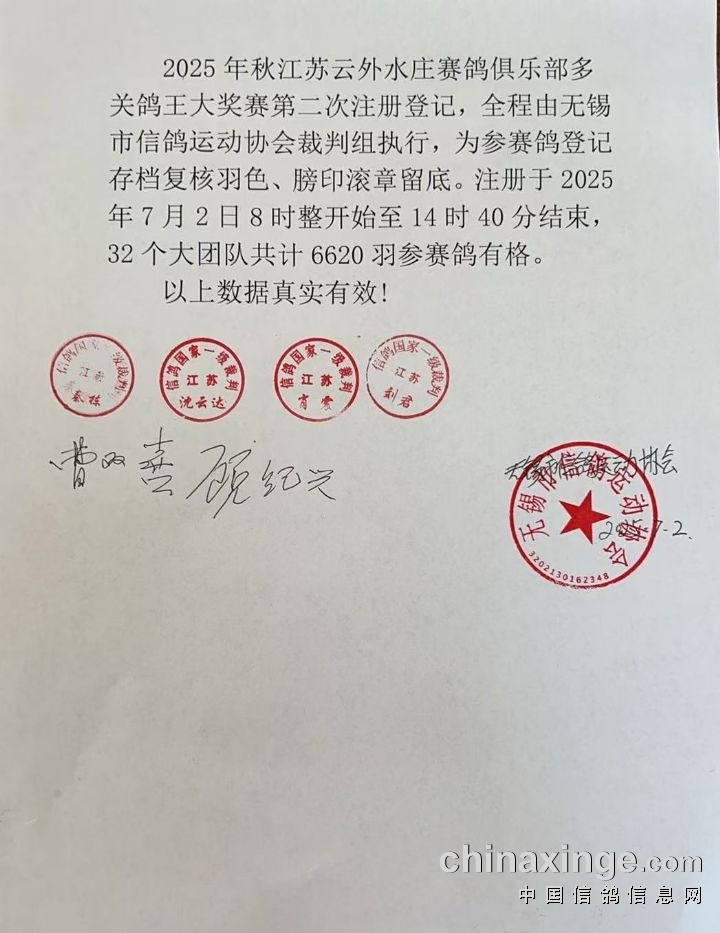 2025 年秋江苏云外水庄赛鸽俱乐部多
关鸽王大奖赛第二次注册登记，全程由无锡
市信鸽运动协会裁判组执行，为参赛鸽登记
存档复核羽色、膀印滚章留底。注册于 2025
年 7 月 2 日 8 时整开始至 14 时 40 分结束，
32 个大团队共计 6620 羽参赛鸽有格。
以上数据真实有效！
信鸽国家一级裁判
江苏
信鸽国家一级裁判
江苏
沈云达
信鸽国家一级裁判
江苏
肖震
信鸽国家一级裁判
江苏
刘君
曹双喜 顾纪兴
无锡市信鸽运动协会
2025.7.2.
无锡市信鸽运动协会
3202130162348
chinaxinge.com
中国信鸽信息网